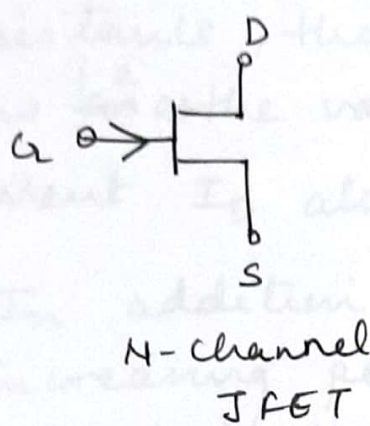 D
G
S
N-channel
JFET